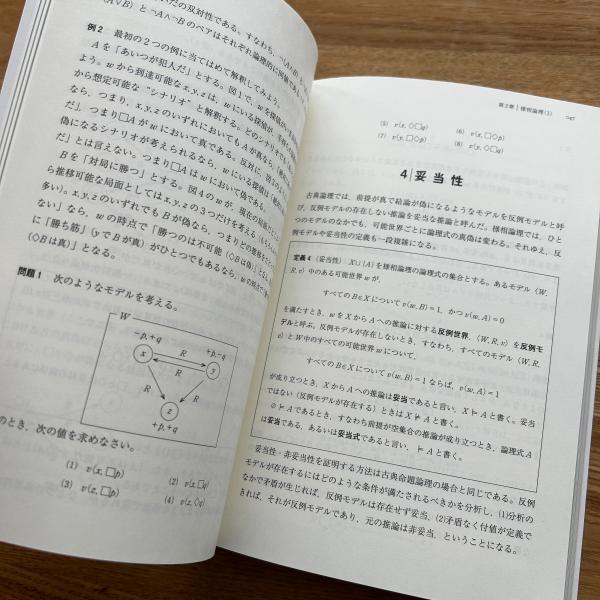 いだの双対性である。すなわち、¬(A∧B)
(A∨B) と ¬A∧¬B のペアはそれぞれ論理的に同値である。
例2 最初の2つの例に当てはめて解釈してみよう。
Aを「あいつが犯人だ」とする。図1で、wを探偵が
よう。wから到達可能な x, y, z は、wにいる探偵が、
から想定可能な “シナリオ” と解釈する。どのシナリオでも
なら、つまり、x, y, z のいずれにおいてもAが真なら、「絶対
だ」、つまり□Aがwにおいて真である。反対に、図2のよう
偽になるシナリオが考えられるなら、wにいる探偵は「絶対
だ」とは言えない。つまり□Aはwにおいて偽である。
Bを「対局に勝つ」とする。図4のwが、現在の局面だと
ら推移可能な局面としてはx, y, z の3つだけを考える
多い)。x, y, z のいずれでもBが偽なら、つまりどの
ない」なら、wの時点で「勝つのは不可能 (◇Bは偽)」
に「勝ち筋」(yでBが真) がひとつでもあるなら、wの時点で
(◇Bは真)」となる。
問題1 次のようなモデルを考える。
W
¬p, +q
+p, ¬q
x
R
y
R
R
z
+p, +q
のとき、次の値を求めなさい。
(1) v(x, □p)
(2) v(x, □q)
(3) v(z, □p)
(4) v(z, ◇q)
第3章 | 様相論理(1) 047
(5) v(x, ◇□q)
(6) v(x, □◇p)
(7) v(x, □◇p)
(8) v(x, ◇□q)
4 | 妥当性
古典論理では、前提が真で結論が偽になるようなモデルを反例モデルと呼
び、反例モデルの存在しない推論を妥当な推論と呼んだ。様相論理では、ひと
つのモデルのなかでも、可能世界ごとに論理式の真偽は変わる。それゆえ、反
例モデルや妥当性の定義も一段複雑になる。
定義4 (妥当性) X∪{A} を様相論理の論理式の集合とする。あるモデル〈W,
R, v〉中のある可能世界wが、
すべてのB∈Xについてv(w, B)=1, かつv(w, A)=0
を満たすとき、wをXからAへの推論に対する反例世界、〈W, R, v〉を反例モ
デルと呼ぶ。反例モデルが存在しないとき、すなわち、すべてのモデル〈W, R,
v〉とW中のすべての可能世界wについて、
すべてのB∈Xについてv(w, B)=1ならば, v(w, A)=1
が成り立つとき、XからAへの推論は妥当であると言い、X⊨Aと書く。妥当
ではない (反例モデルが存在する) ときはX⊭Aと書く。
∅⊨Aであるとき、すなわち前提が空集合の推論が成り立つとき、論理式A
は妥当である、あるいは妥当式であると言い、⊨Aと書く。
妥当性・非妥当性を証明する方法は古典命題論理の場合と同じである。反例
モデルが存在するにはどのような条件が満たされるべきかを分析し、(1)分析の
なかで矛盾が生じれば、反例モデルは存在せず妥当、(2)矛盾なく付値が定義で
きれば、それが反例モデルであり、元の推論は非妥当、ということになる。